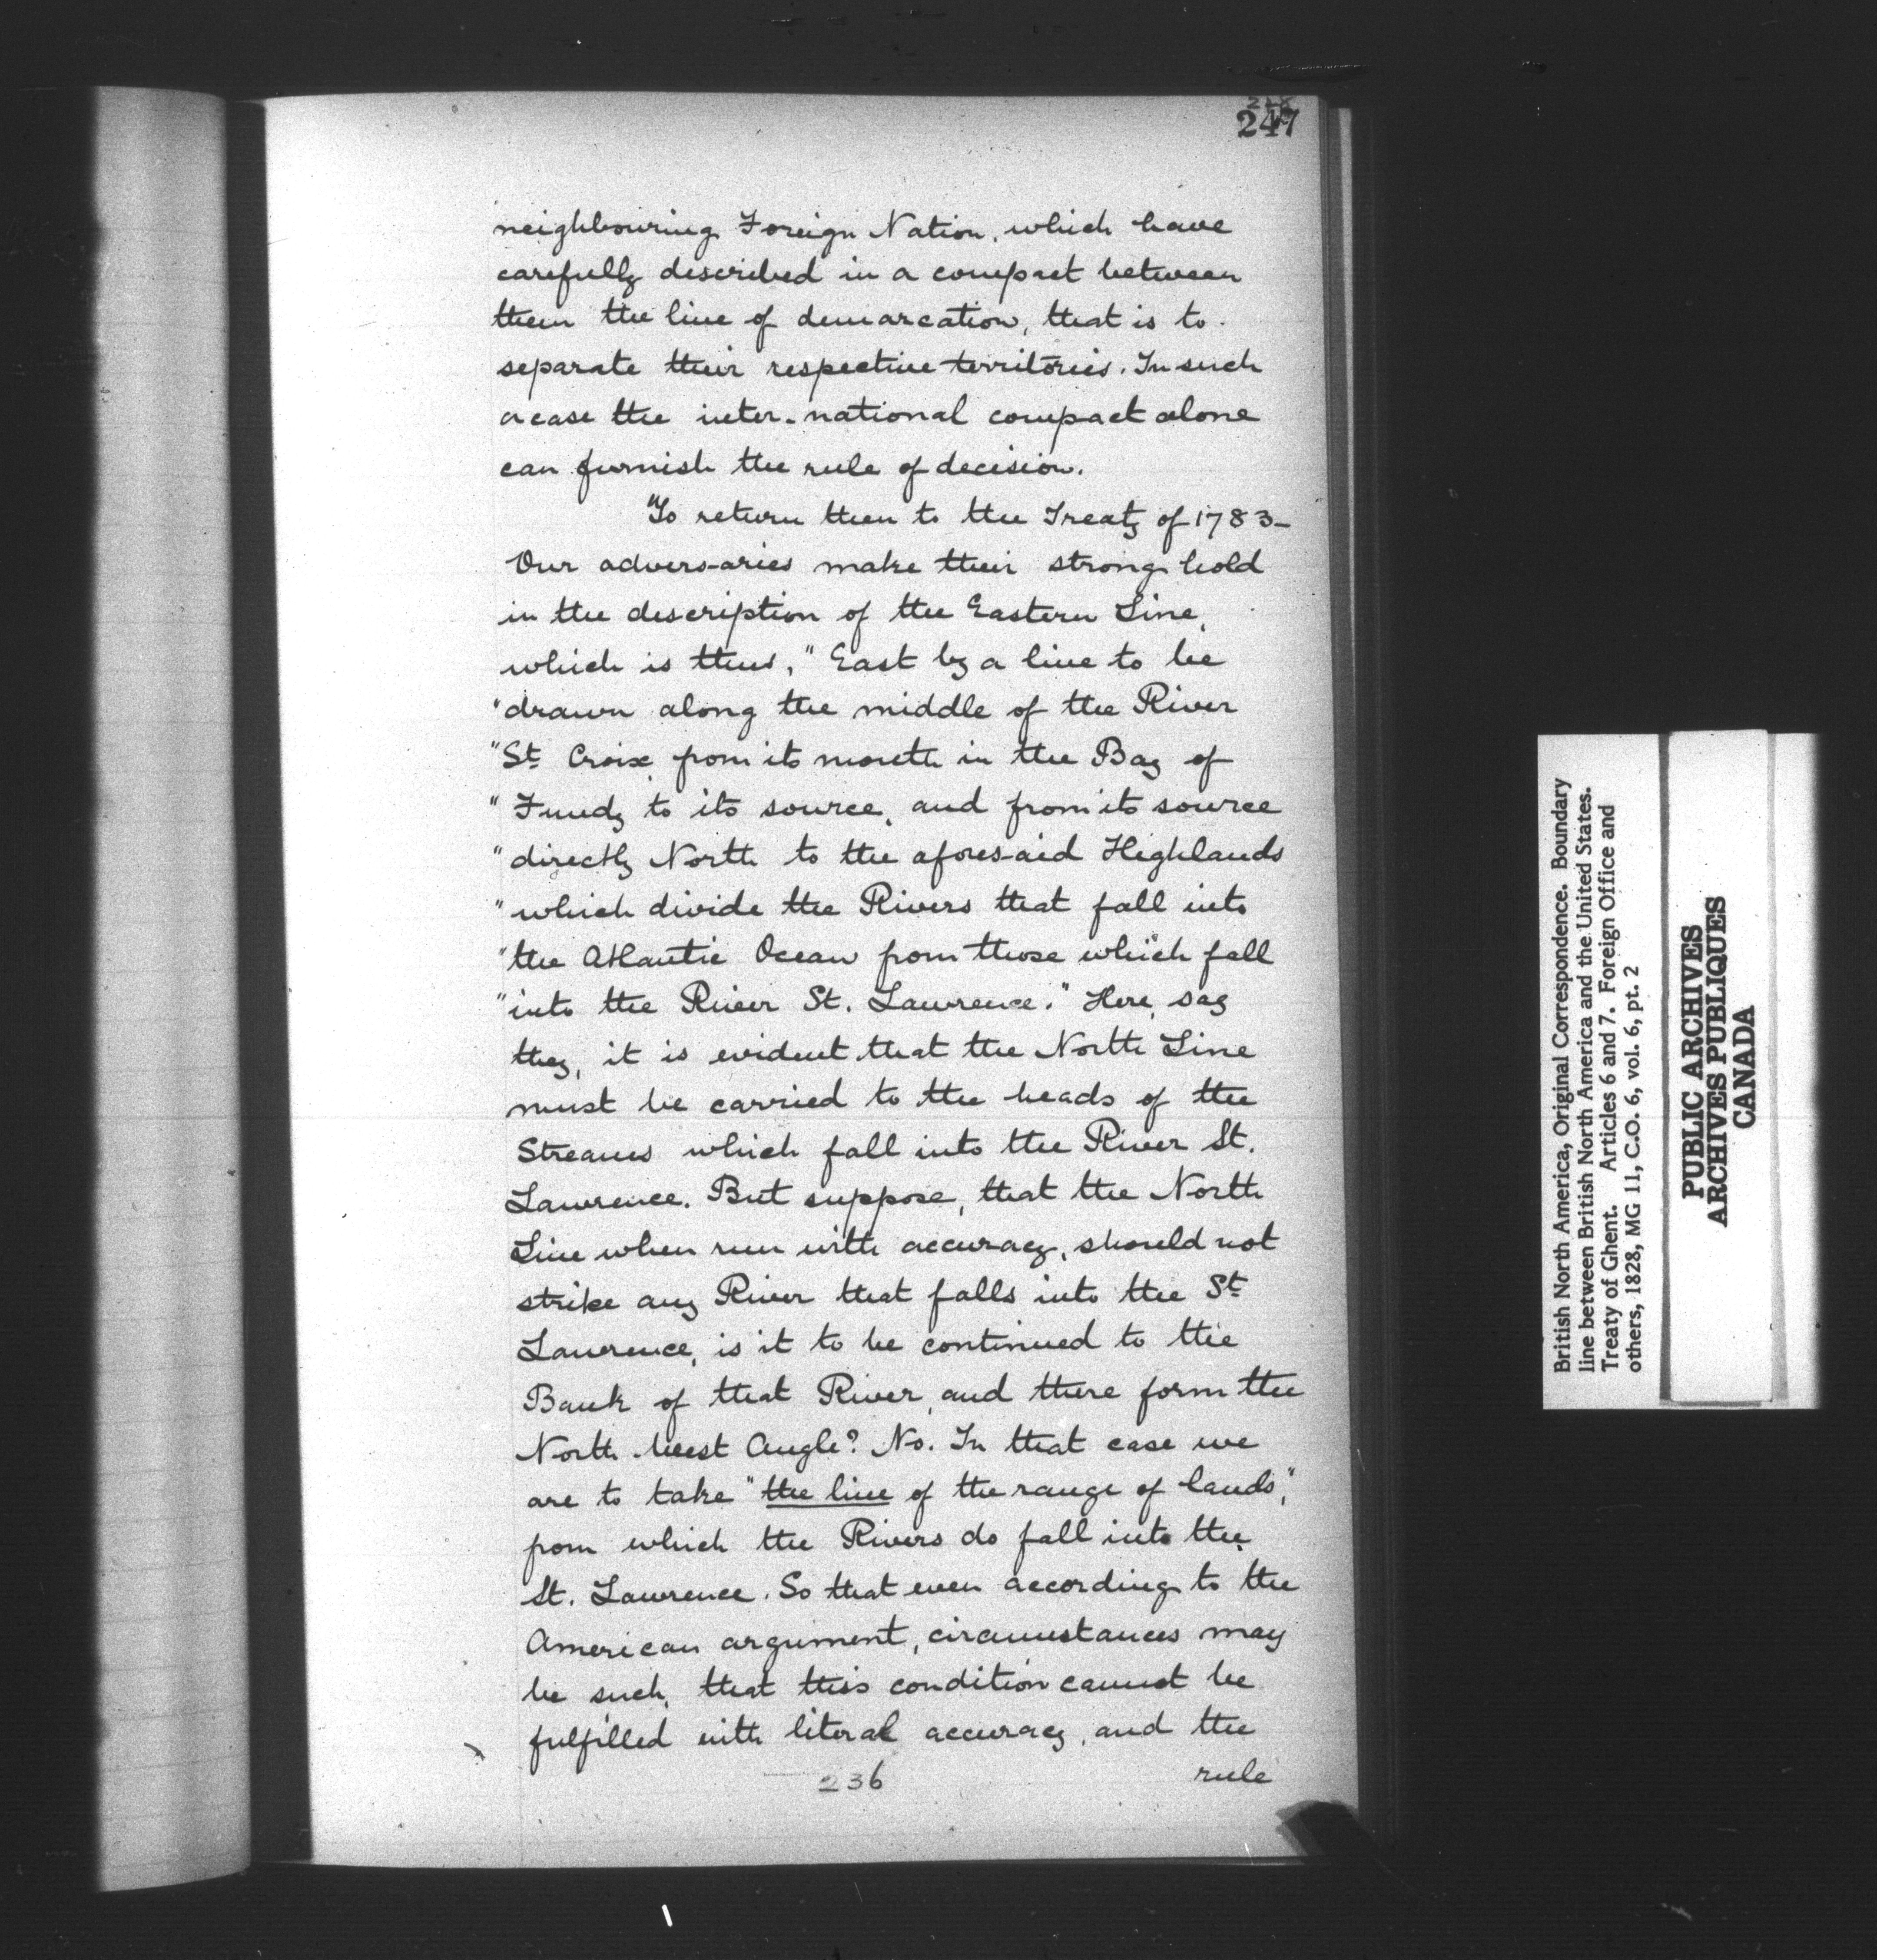 247
neighbouring Foreign Nation, which have
carefully described in a compact between
them the line of demarcation, that is to
separate their respective territories. In such
a case the inter-national compact alone
can furnish the rule of decision.
"To return then to the Treaty of 1783-
Our advers-aries make their strong hold
in the description of the Eastern Line,
which is thus, "East by a line to be
"drawn along the middle of the River
"St. Croix, from its mouth in the Bay of
"Fundy to its source, and from its source
"directly North to the afores-aid Highlands
"which divide the Rivers that fall into
"the Atlantic Ocean from those which fall
"into the River St. Lawrence." Here, say
they, it is evident that the North Line
must be carried to the heads of the
Streams which fall into the River St.
Lawrence. But suppose, that the North
Line when run with accuracy, should not
strike any River that falls into the St.
Lawrence, is it to be continued to the
Bank of that River, and there form the
North West Angle? No. In that case we
are to take "the line of the range of lands,"
from which the Rivers do fall into the
St. Lawrence. So that even according to the
American argument, circumstances may
be such, that this condition cannot be
fulfilled with literal accuracy, and the
236
rule
British North America, Original Correspondence. Boundary
line between British North America and the United States.
Treaty of Ghent. Articles 6 and 7. Foreign Office and
others, 1828, MG 11, C.O. 6, vol. 6, pt. 2
PUBLIC ARCHIVES
ARCHIVES PUBLIQUES
CANADA